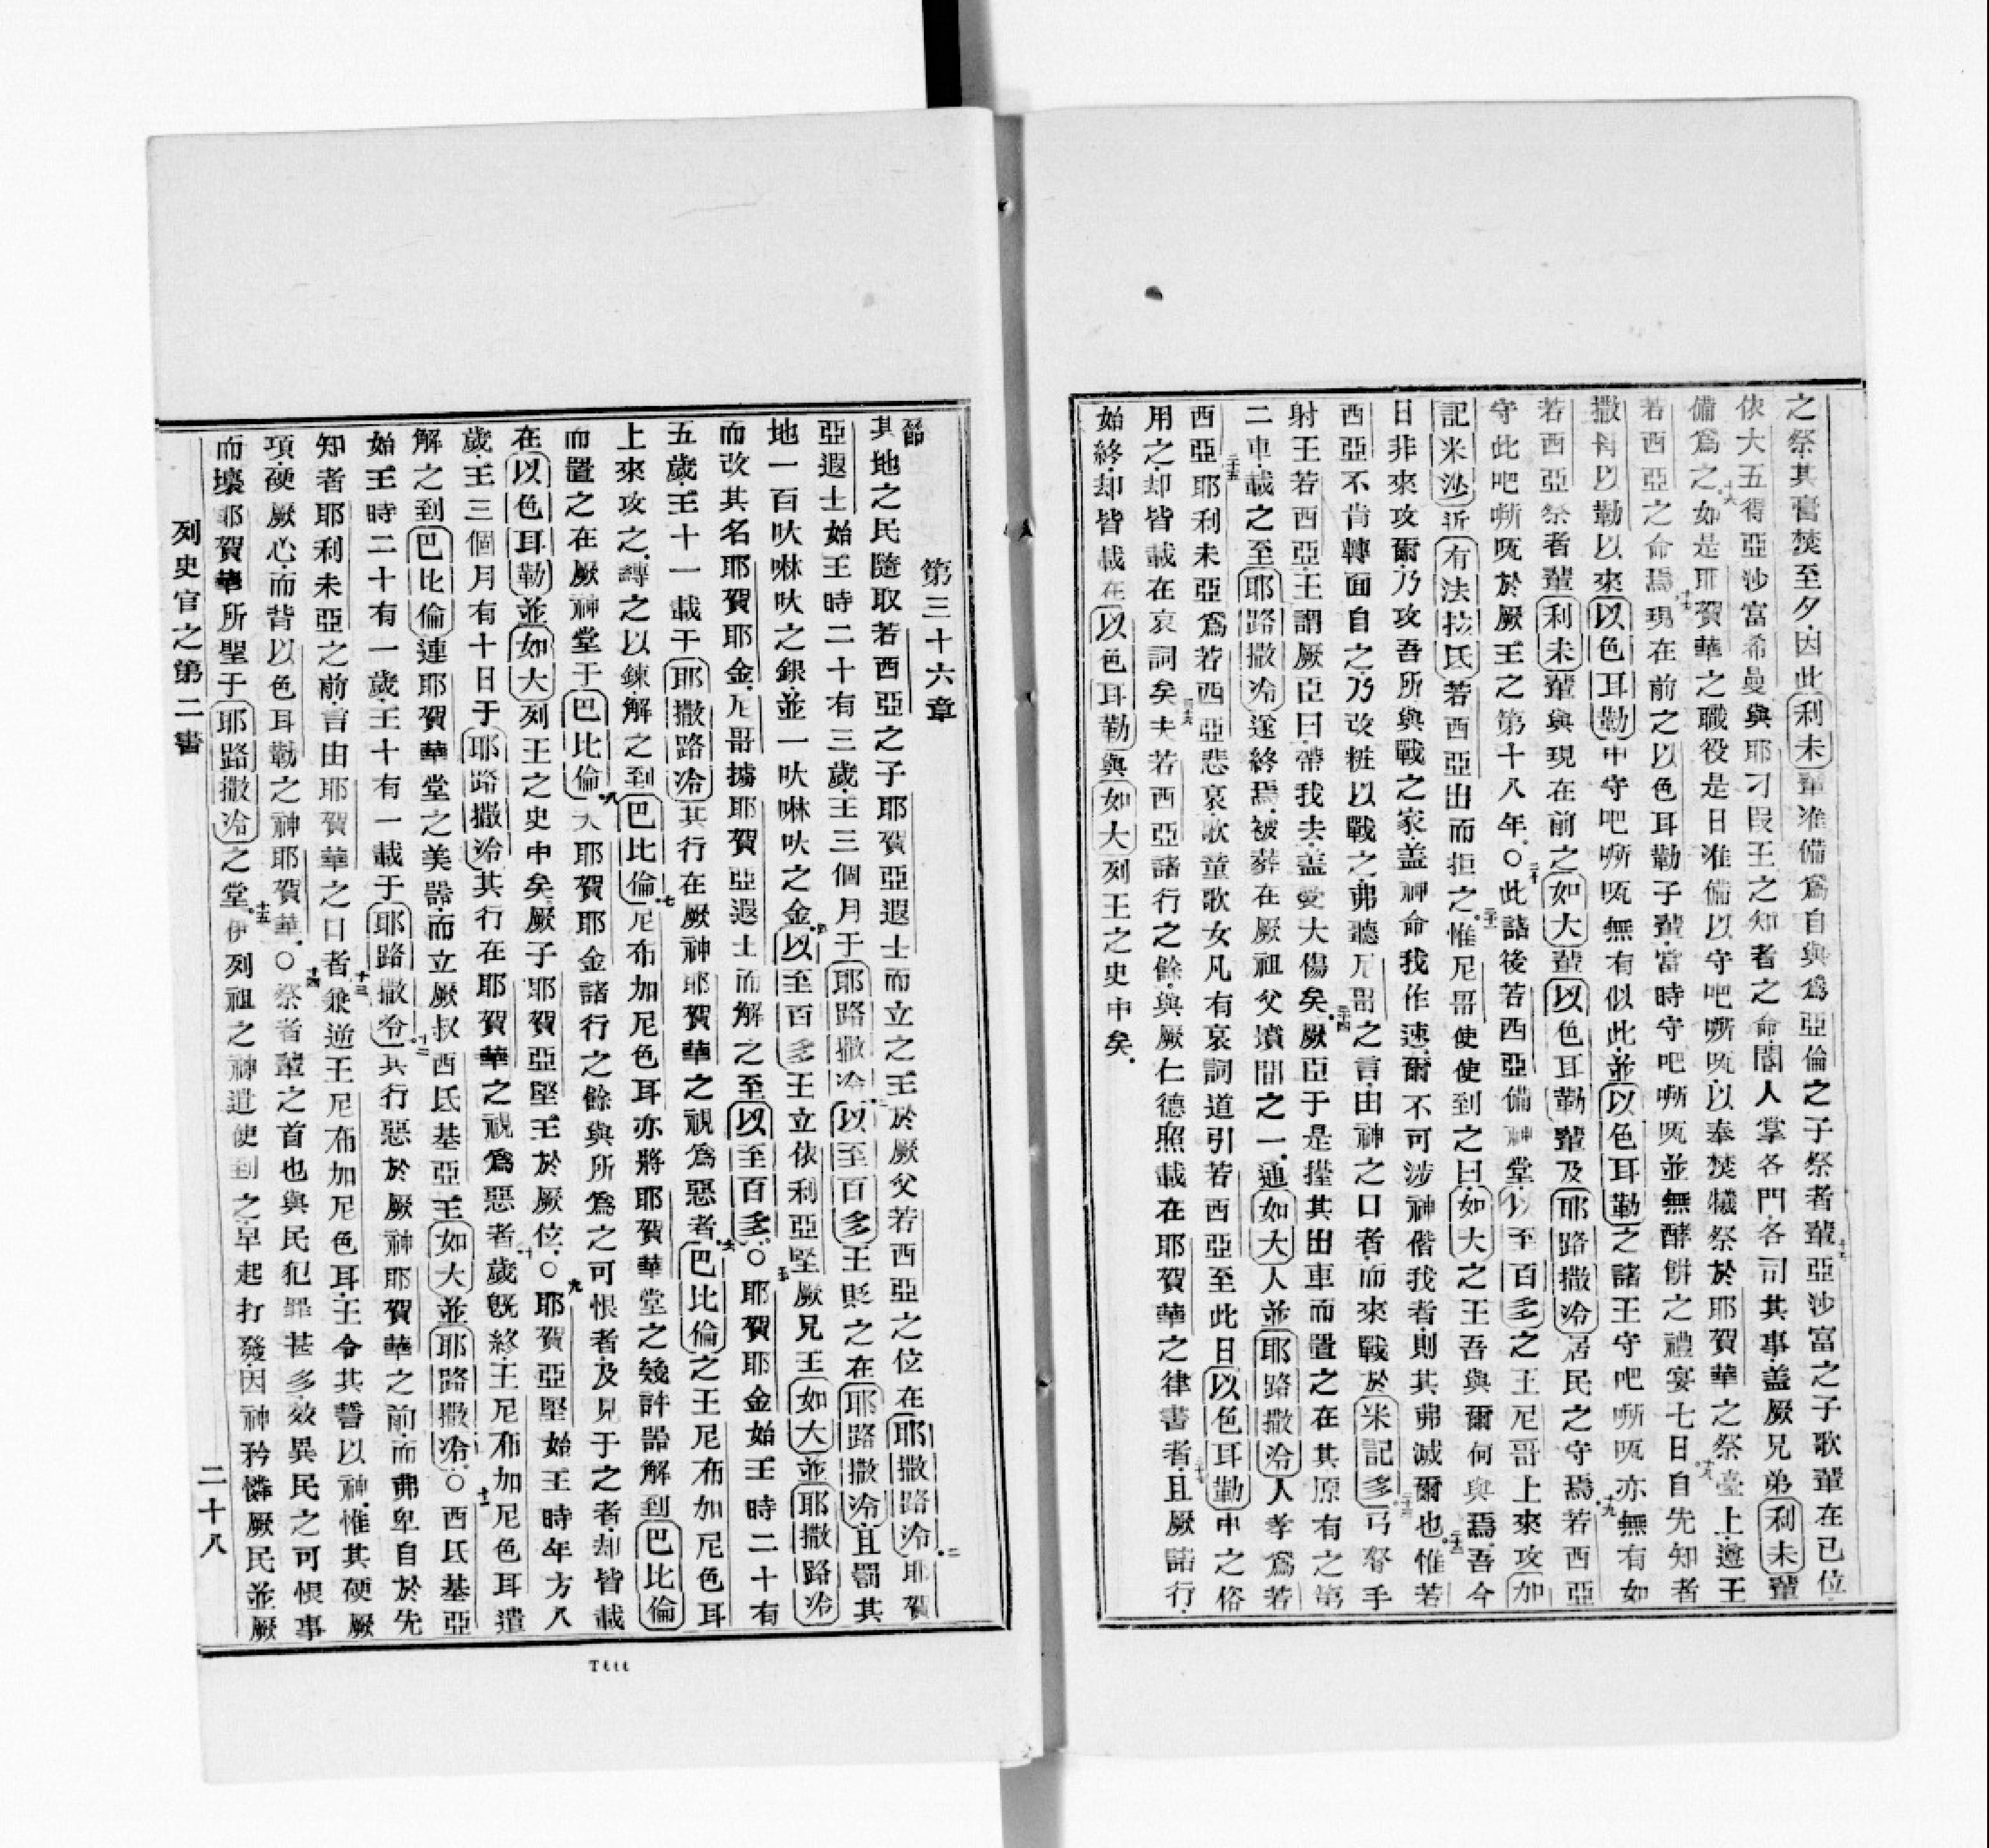 之祭其膏焚至夕因此利未輩准備爲自與爲亞倫之子祭者輩十五亞沙富之子歌輩在已位
依大五得亞沙富希曼與耶刁叚王之知者之命閽人掌各門各司其事蓋厥兄弟利未輩
備爲之十六如是耶賀華之職役是日准備以守吧嘶㕸以奉焚犧祭於耶賀華之祭臺上遵王
若西亞之命焉十七現在前之以色耳勒子輩當時守吧嘶㕸並無酵餅之禮宴七日十八自先知者
撒母以勒以來以色耳勒中守吧嘶㕸無有似此並以色耳勒之諸王守吧嘶㕸亦無有如
若西亞祭者輩利未輩與現在前之如大輩以色耳勒輩及耶路撒冷居民之守焉十九若西亞
守此吧嘶㕸於厥王之第十八年○二十此諸後若西亞備神堂以至百多之王尼哥上來攻加
記米沙近有法拉氐若西亞出而拒之二十一惟尼哥使使到之曰如大之王吾與爾何與焉吾今
日非來攻爾乃攻吾所與戰之家蓋神命我作速爾不可涉神偕我者則其弗滅爾也二十二惟若
西亞不肯轉面自之乃改粧以戰之弗聽尼哥之言由神之口者而來戰於米記多二十三弓弩手
射王若西亞王謂厥臣曰帶我去蓋受大傷矣二十四厥臣于是攆其出車而置之在其原有之第
二車載之至耶路撒冷遂終焉被葬在厥祖父墳間之一通如大人並耶路撒冷人孝爲若
西亞二十五耶利未亞爲若西亞悲哀歌童歌女凡有哀詞道引若西亞至此日以色耳勒中之俗
用之却皆載在哀詞矣二十六夫若西亞諸行之餘與厥仁德照載在耶賀華之律書者二十七且厥諸行
始終却皆載在以色耳勒與如大列王之史中矣
第三十六章
其一節地之民隨取若西亞之子耶賀亞遐士而立之王於厥父若西亞之位在耶撒路冷二耶賀
亞遐士始王時二十有三歲王三個月于耶路撒冷三以至百多王貶之在耶路撒冷且罰其
地一百吙啉吙之銀並一吙啉吙之金四以至百多王立依利亞堅厥兄王如大並耶撒路冷
而改其名耶賀耶金尼哥擄耶賀亞遐士而解之至以至百多○五耶賀耶金始王時二十有
五歲王十一載于耶撒路冷其行在厥神耶賀華之視爲惡者六巴比倫之王尼布加尼色耳
上來攻之縛之以鍊解之到巴比倫七尼布加尼色耳亦將耶賀華堂之幾許器解到巴比倫
而置之在厥神堂于巴比倫八夫耶賀耶金諸行之餘與所爲之可恨者及見于之者却皆載
在以色耳勒並如大列王之史中矣厥子耶賀亞堅王於厥位○九耶賀亞堅始王時年方八
歲王三個月有十日于耶路撒冷其行在耶賀華之視爲惡者十歲旣終王尼布加尼色耳遣
解之到巴比倫連耶賀華堂之美器而立厥叔西氐基亞王如大並耶路撒冷○十一西氐基亞
始王時二十有一歲王十有一載于耶路撒冷十二其行惡於厥神耶賀華之前而弗卑自於先
知者耶利未亞之前言由耶賀華之口者十三兼逆王尼布加尼色耳王令其誓以神惟其硬厥
項硬厥心而背以色耳勒之神耶賀華○十四祭者輩之首也與民犯罪甚多效異民之可恨事
而壞耶賀華所聖于耶路撒冷之堂十五伊列祖之神遣使到之早起打發因神矜憐厥民並厥
列史官之第二書
二十八
Tttt